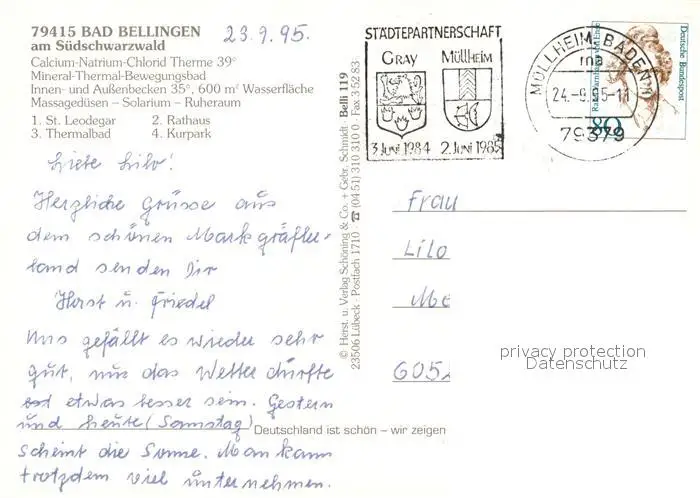 79415 BAD BELLINGEN
am Südschwarzwald
Calcium-Natrium-Chlorid Therme 39°
Mineral-Thermal-Bewegungsbad
Innen- und Außenbecken 35°, 600 m² Wasserfläche
Massagedüsen – Solarium – Ruheraum
1. St. Leodegar 2. Rathaus
3. Thermalbad 4. Kurpark
23.9.95.
Liebe Lilo!
Herzliche Grüsse aus
dem schönen Markgräfler-
land senden Dir
Horst u. Friedel
Uns gefällt es wieder sehr
gut, nur das Wetter dürfte
etwas besser sein. Gestern
und heute (Samstag)
scheint die Sonne. Man kann
trotzdem viel unternehmen.
Deutschland ist schön – wir zeigen
© Herst. u. Verlag Schöning & Co. + Gebr. Schmidt Belli 119
23506 Lübeck · Postfach 1710 · ☎ (04 51) 310 310 0 · Fax 3 52 83
STÄDTEPARTNERSCHAFT
GRAY MÜLLHEIM
3. JUNI 1984 2. JUNI 1985
MÜLLHEIM, BADEN
mb
24.-9.95-11
79379
Deutsche Bundespost
80
Frau
Lilo
Me
6052
privacy protection
Datenschutz